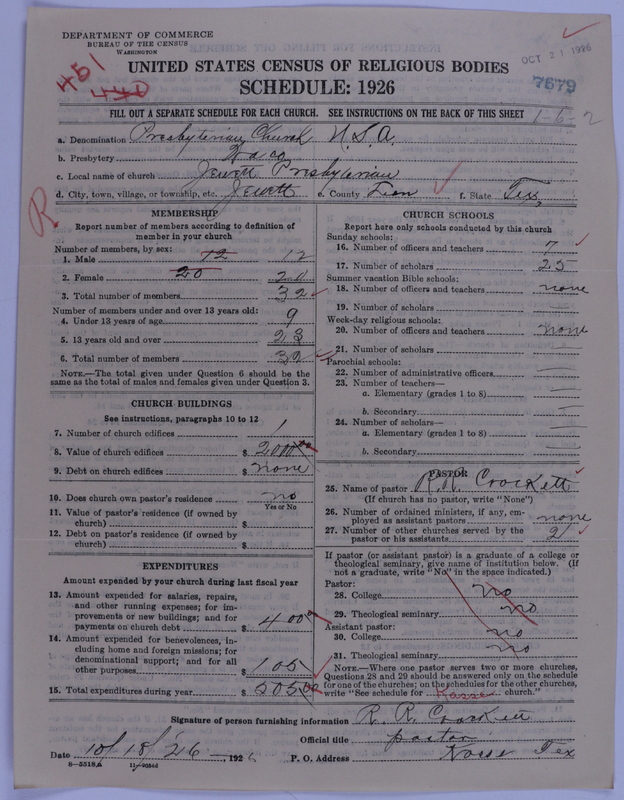 DEPARTMENT OF COMMERCE
BUREAU OF THE CENSUS
WASHINGTON
OCT 21 1926
7679
451
440
UNITED STATES CENSUS OF RELIGIOUS BODIES
SCHEDULE: 1926
FILL OUT A SEPARATE SCHEDULE FOR EACH CHURCH. SEE INSTRUCTIONS ON THE BACK OF THIS SHEET
1-6-2
a. Denomination Presbyterian Church U.S.A.
b. Presbytery Waco
c. Local name of church Jewett Presbyterian
d. City, town, village, or township, etc. Jewett e. County Leon f. State Tex,
R
MEMBERSHIP
Report number of members according to definition of
member in your church
Number of members, by sex:
1. Male 12 12
2. Female 20 20
3. Total number of members 32
Number of members under and over 13 years old:
4. Under 13 years of age 9
5. 13 years old and over 23
6. Total number of members 32
NOTE.—The total given under Question 6 should be
same as the total of males and females given under Question 3.
CHURCH BUILDINGS
See instructions, paragraphs 10 to 12
7. Number of church edifices 1
8. Value of church edifices $ 2000
9. Debt on church edifices $ none
10. Does church own pastor's residence no
Yes or No
11. Value of pastor's residence (if owned by
church) $
12. Debt on pastor's residence (if owned by
church) $
EXPENDITURES
Amount expended by your church during last fiscal year
13. Amount expended for salaries, repairs,
and other running expenses; for im-
provements or new buildings; and for
payments on church debt $ 400
14. Amount expended for benevolences, in-
cluding home and foreign missions; for
denominational support; and for all
other purposes $ 105
15. Total expenditures during year $ 505
CHURCH SCHOOLS
Report here only schools conducted by this church
Sunday schools:
16. Number of officers and teachers 7
17. Number of scholars 25
Summer vacation Bible schools:
18. Number of officers and teachers none
19. Number of scholars
Week-day religious schools:
20. Number of officers and teachers none
21. Number of scholars
Parochial schools:
22. Number of administrative officers
23. Number of teachers—
a. Elementary (grades 1 to 8)
b. Secondary
24. Number of scholars—
a. Elementary (grades 1 to 8)
b. Secondary
PASTOR
25. Name of pastor R.R. Crockett
(If church has no pastor, write "None")
26. Number of ordained ministers, if any, em-
ployed as assistant pastors none
27. Number of other churches served by the
pastor or his assistants 2
If pastor (or assistant pastor) is a graduate of a college or
theological seminary, give name of institution below. (If
not a graduate, write "No," in the space indicated.)
Pastor:
28. College no
29. Theological seminary no
Assistant pastor:
30. College no
31. Theological seminary no
NOTE.—Where one pastor serves two or more churches,
Questions 28 and 29 should be answered only on the schedule
for one of the churches; on the schedules for the other churches,
write "See schedule for Kosse church."
Signature of person furnishing information R. R. Crockett
Official title pastor
Date 10/18/26, 1926 P. O. Address Kosse Tex
8—5518a 11—9054d